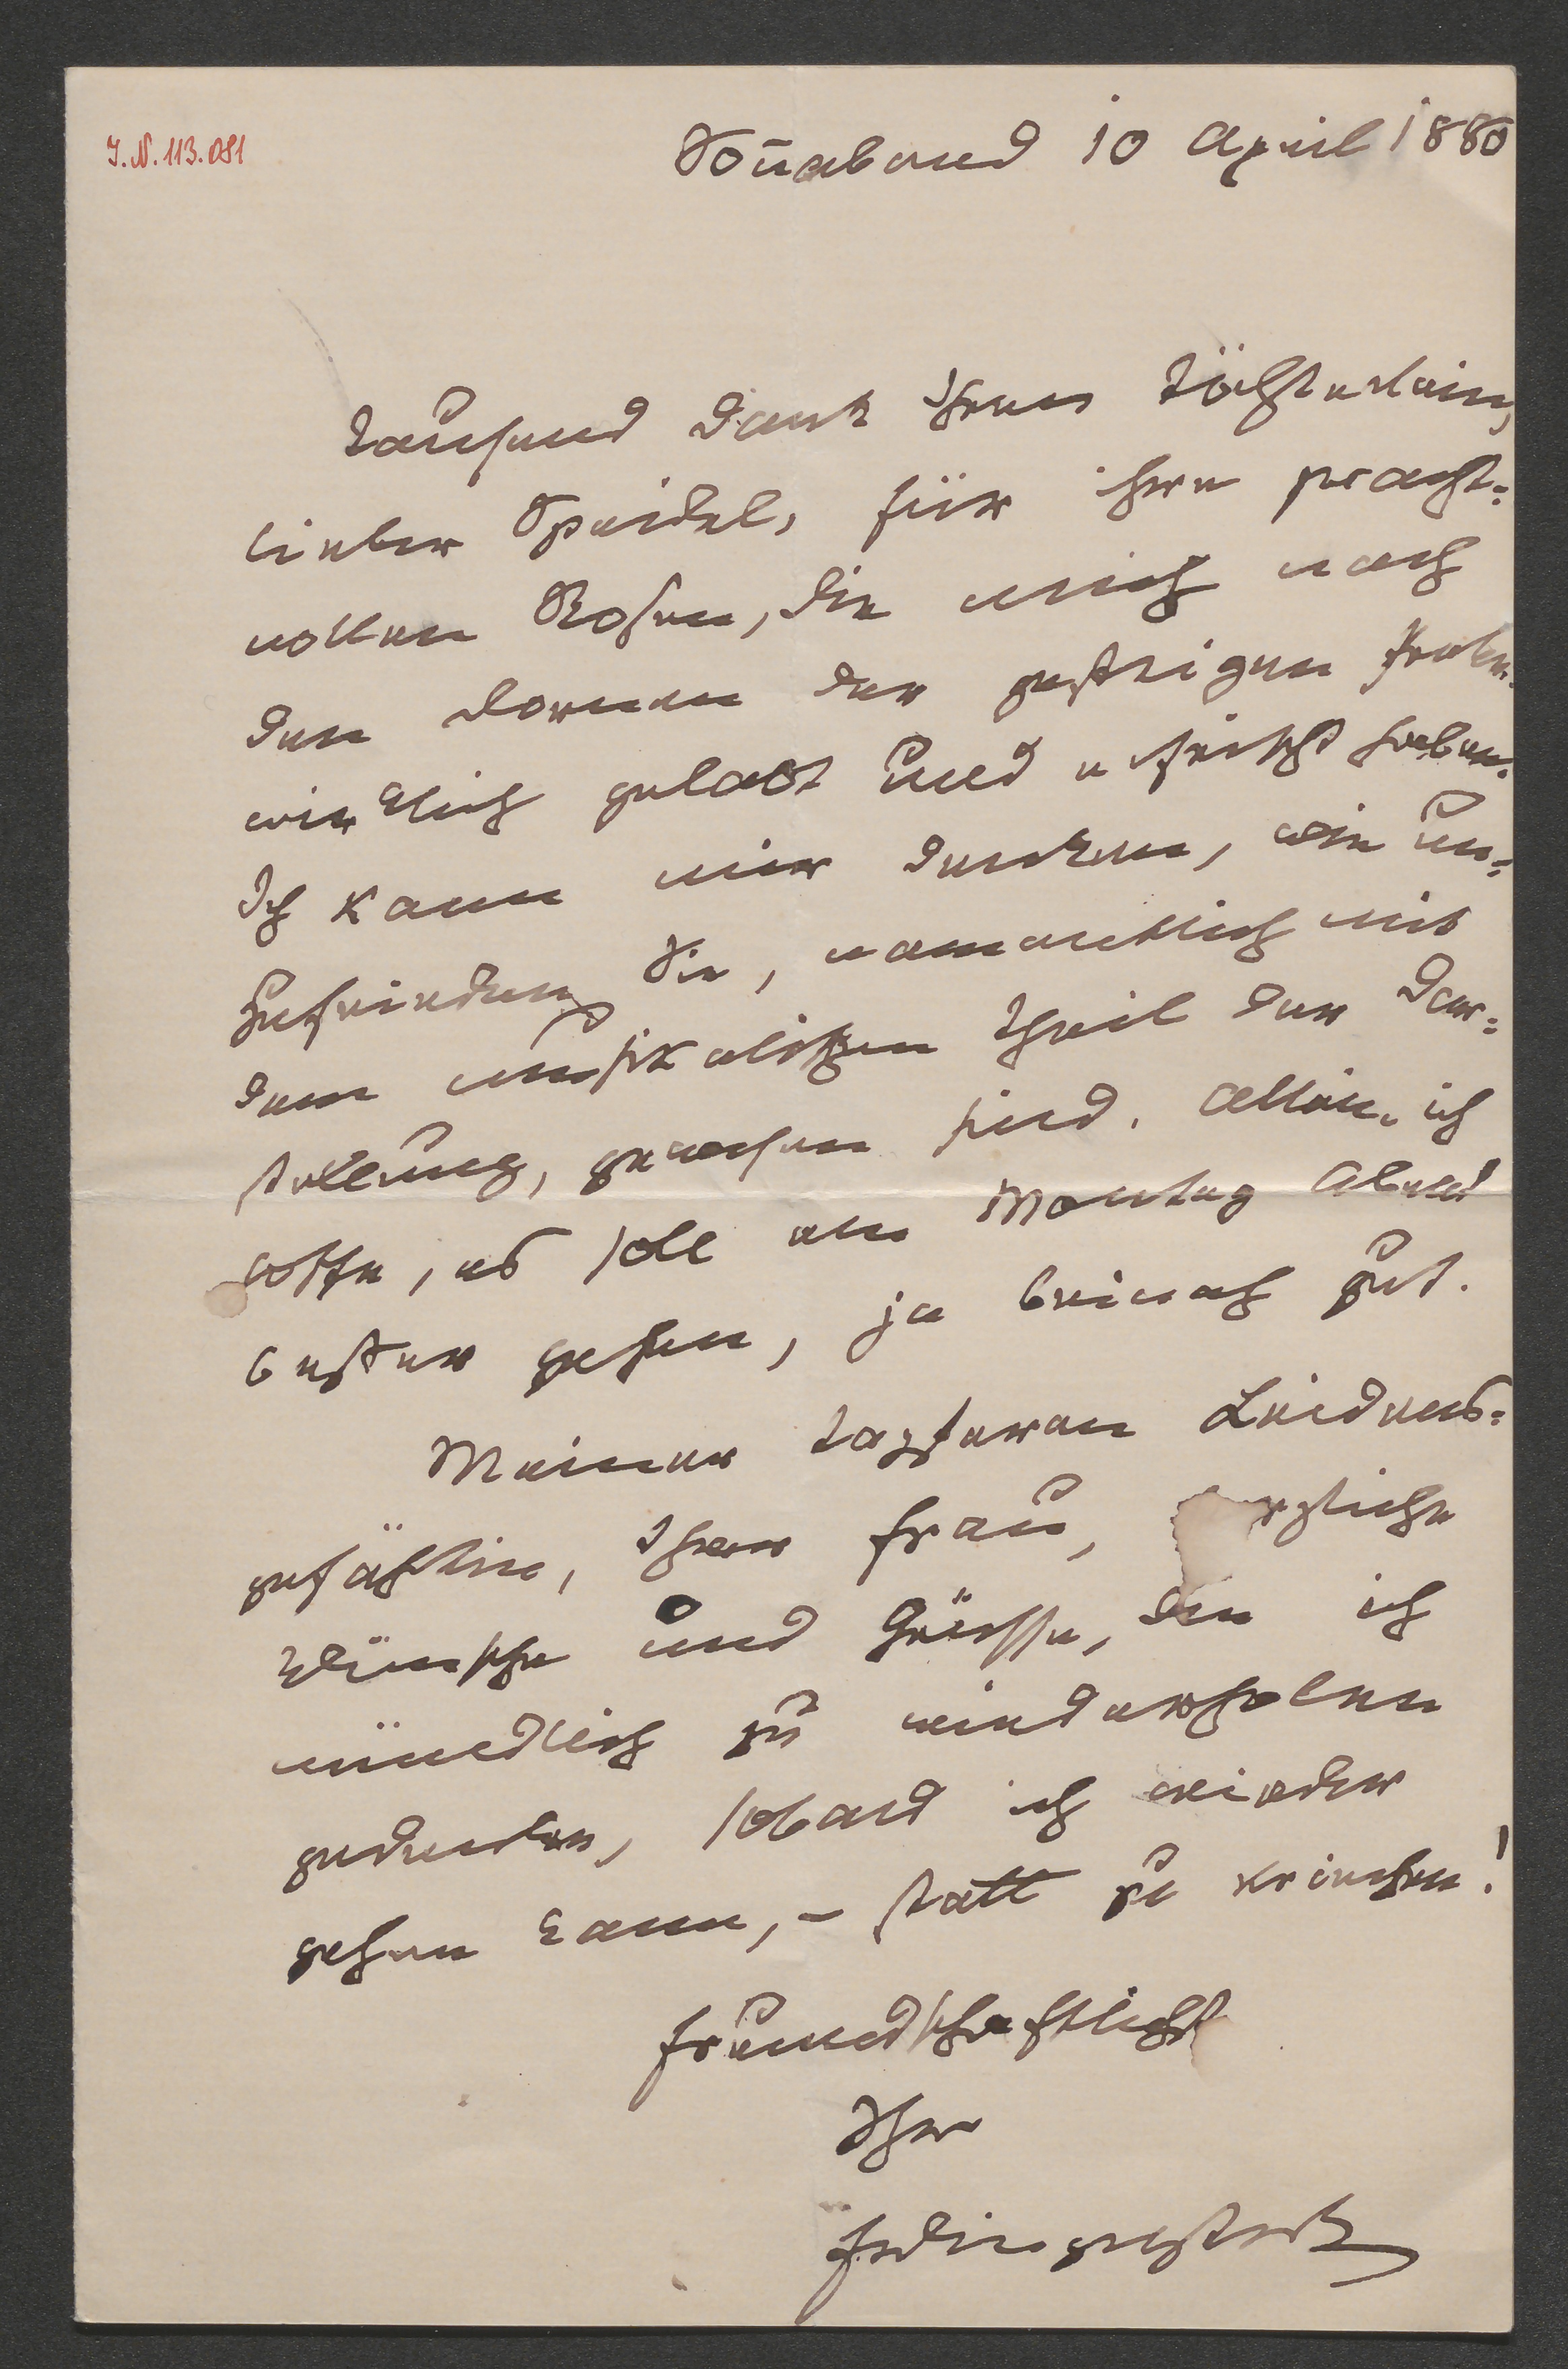 I. N. 113.081
Son̄abend 10 April 1880
Tausend Dank Ihrem Töchterlein,
lieber Speidel, für ihre pracht-
vollen Rosen, die mich nach
den Dornen der gestrigen Probe
wirklich gelabt und erfrischt haben.
Ich kann mir denken, wie un-
zufrieden Sie, namentlich mit
dem musikalischen Theil der Dar-
stellung, gewesen sind. Allein ich
hoffe, es soll am Montag Abend
besser gehen, ja beinah gut.
Meiner tapferen Leidens-
gefährtin, Ihrer Frau, herzliche
Wünsche und Grüsse, die ich
mündlich zu wiederholen
gedenke, sobald ich wieder
gehen kann, – statt zu kriechen!
Freundschaftlichst
Ihr
FrDingelstedt